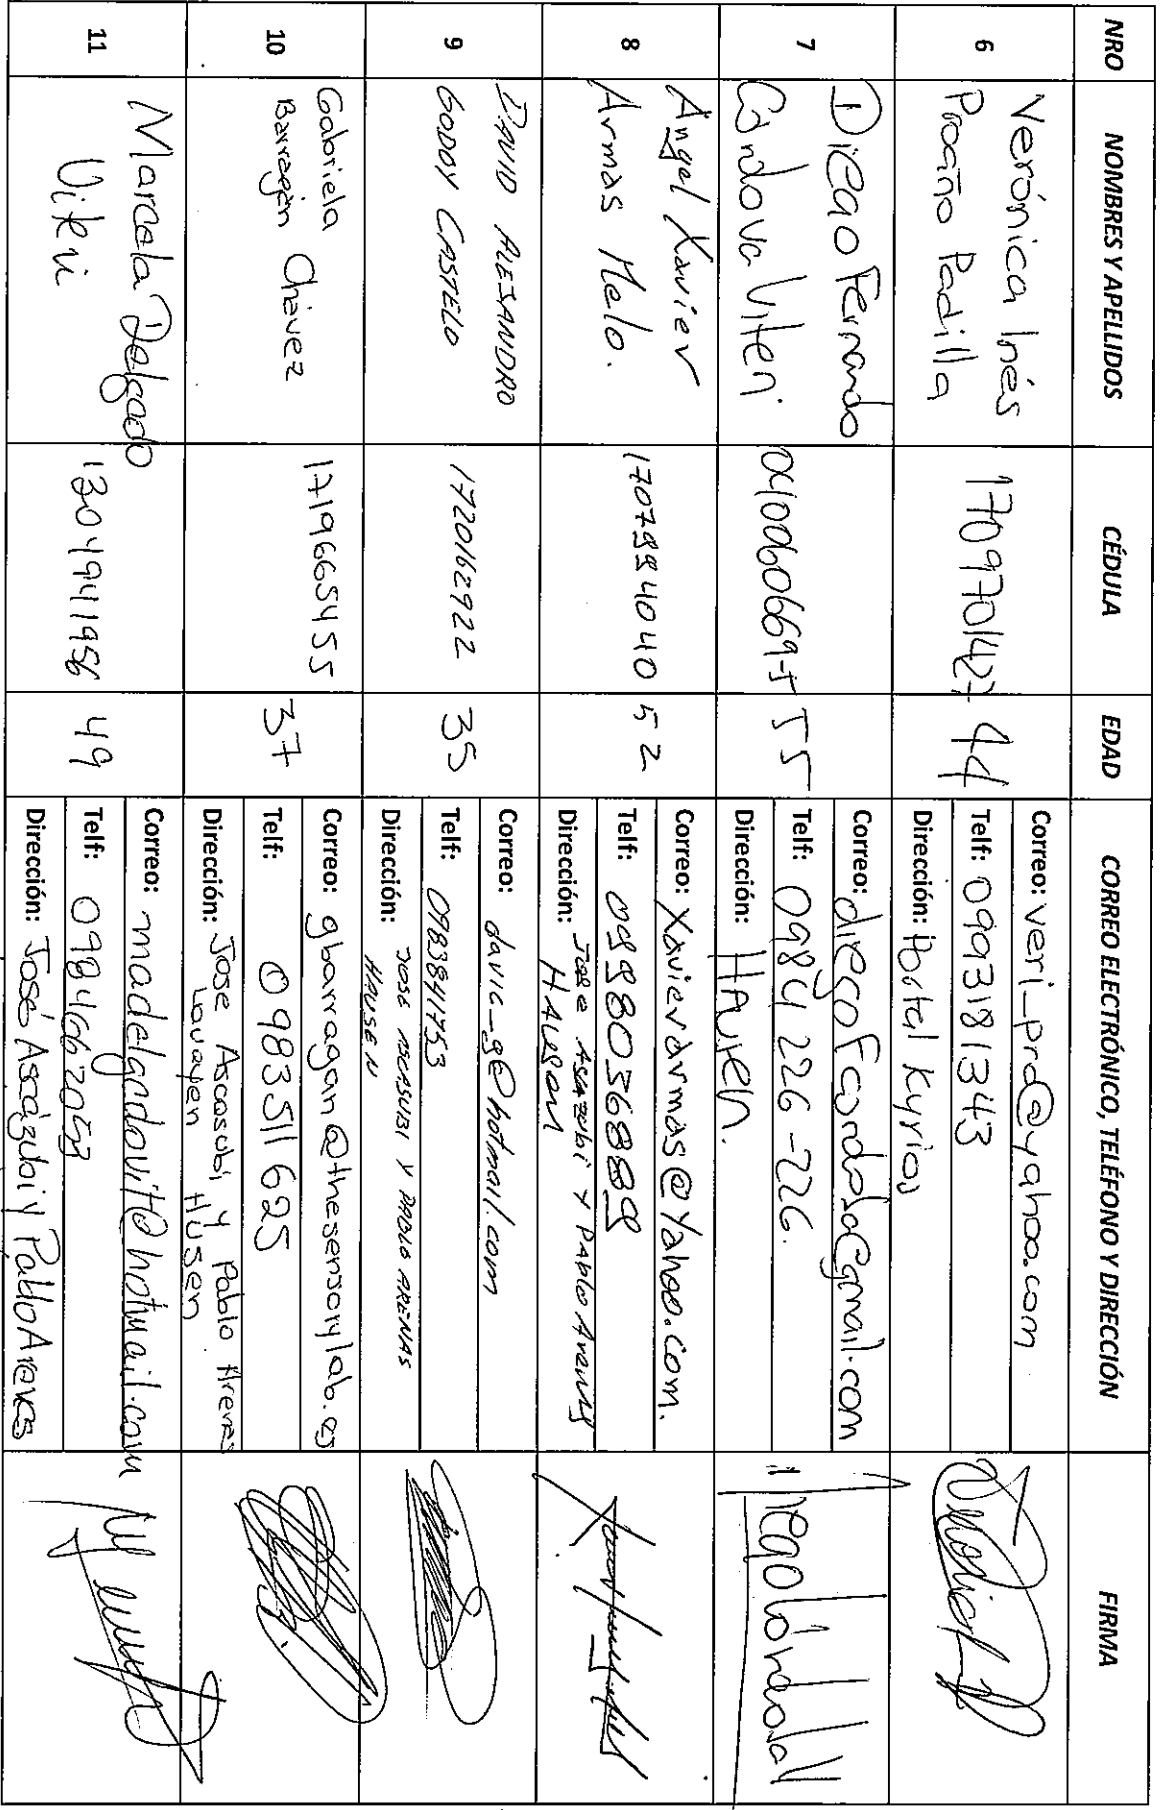 NRO NOMBRES Y APELLIDOS CÉDULA EDAD CORREO ELECTRÓNICO, TELÉFONO Y DIRECCIÓN FIRMA
6
Verónica Inés
Proaño Padilla
1709701427
44
Correo: veri_pra@yahoo.com
Telf: 0993181343
Dirección: Portal Kyrios
7
Diego Fernando
Córdova Viteri
55
Correo: diegofcordova@gmail.com
Telf: 0984 226-226.
Dirección:
8
Angel Xavier
Armas Melo.
52
Correo: Xavierdarmas@Yahoo.com.
Telf: 0998036889
Dirección: Jose Ascazubi y Pablo Arenas
9
DAVID ALEJANDRO
GODOY CASTELO
1720162922
35
Correo: davic_g@hotmail.com
Telf: 0983841753
Dirección: JOSE ASCASUBI Y PABLO ARENAS
HAUSEN
10
Gabriela
Barragán Chávez
1719665455
37
Correo: gbarragan@thesensorylab.es
Telf: 0983511625
Dirección: Jose Ascasubi y Pablo Arenas
Lavayen Husen
11
Marcela Delgado
Viteri
1304941956
49
Correo: madelgadovit@hotmail.com
Telf: 0984662053
Dirección: José Ascázubi y Pablo Arenas